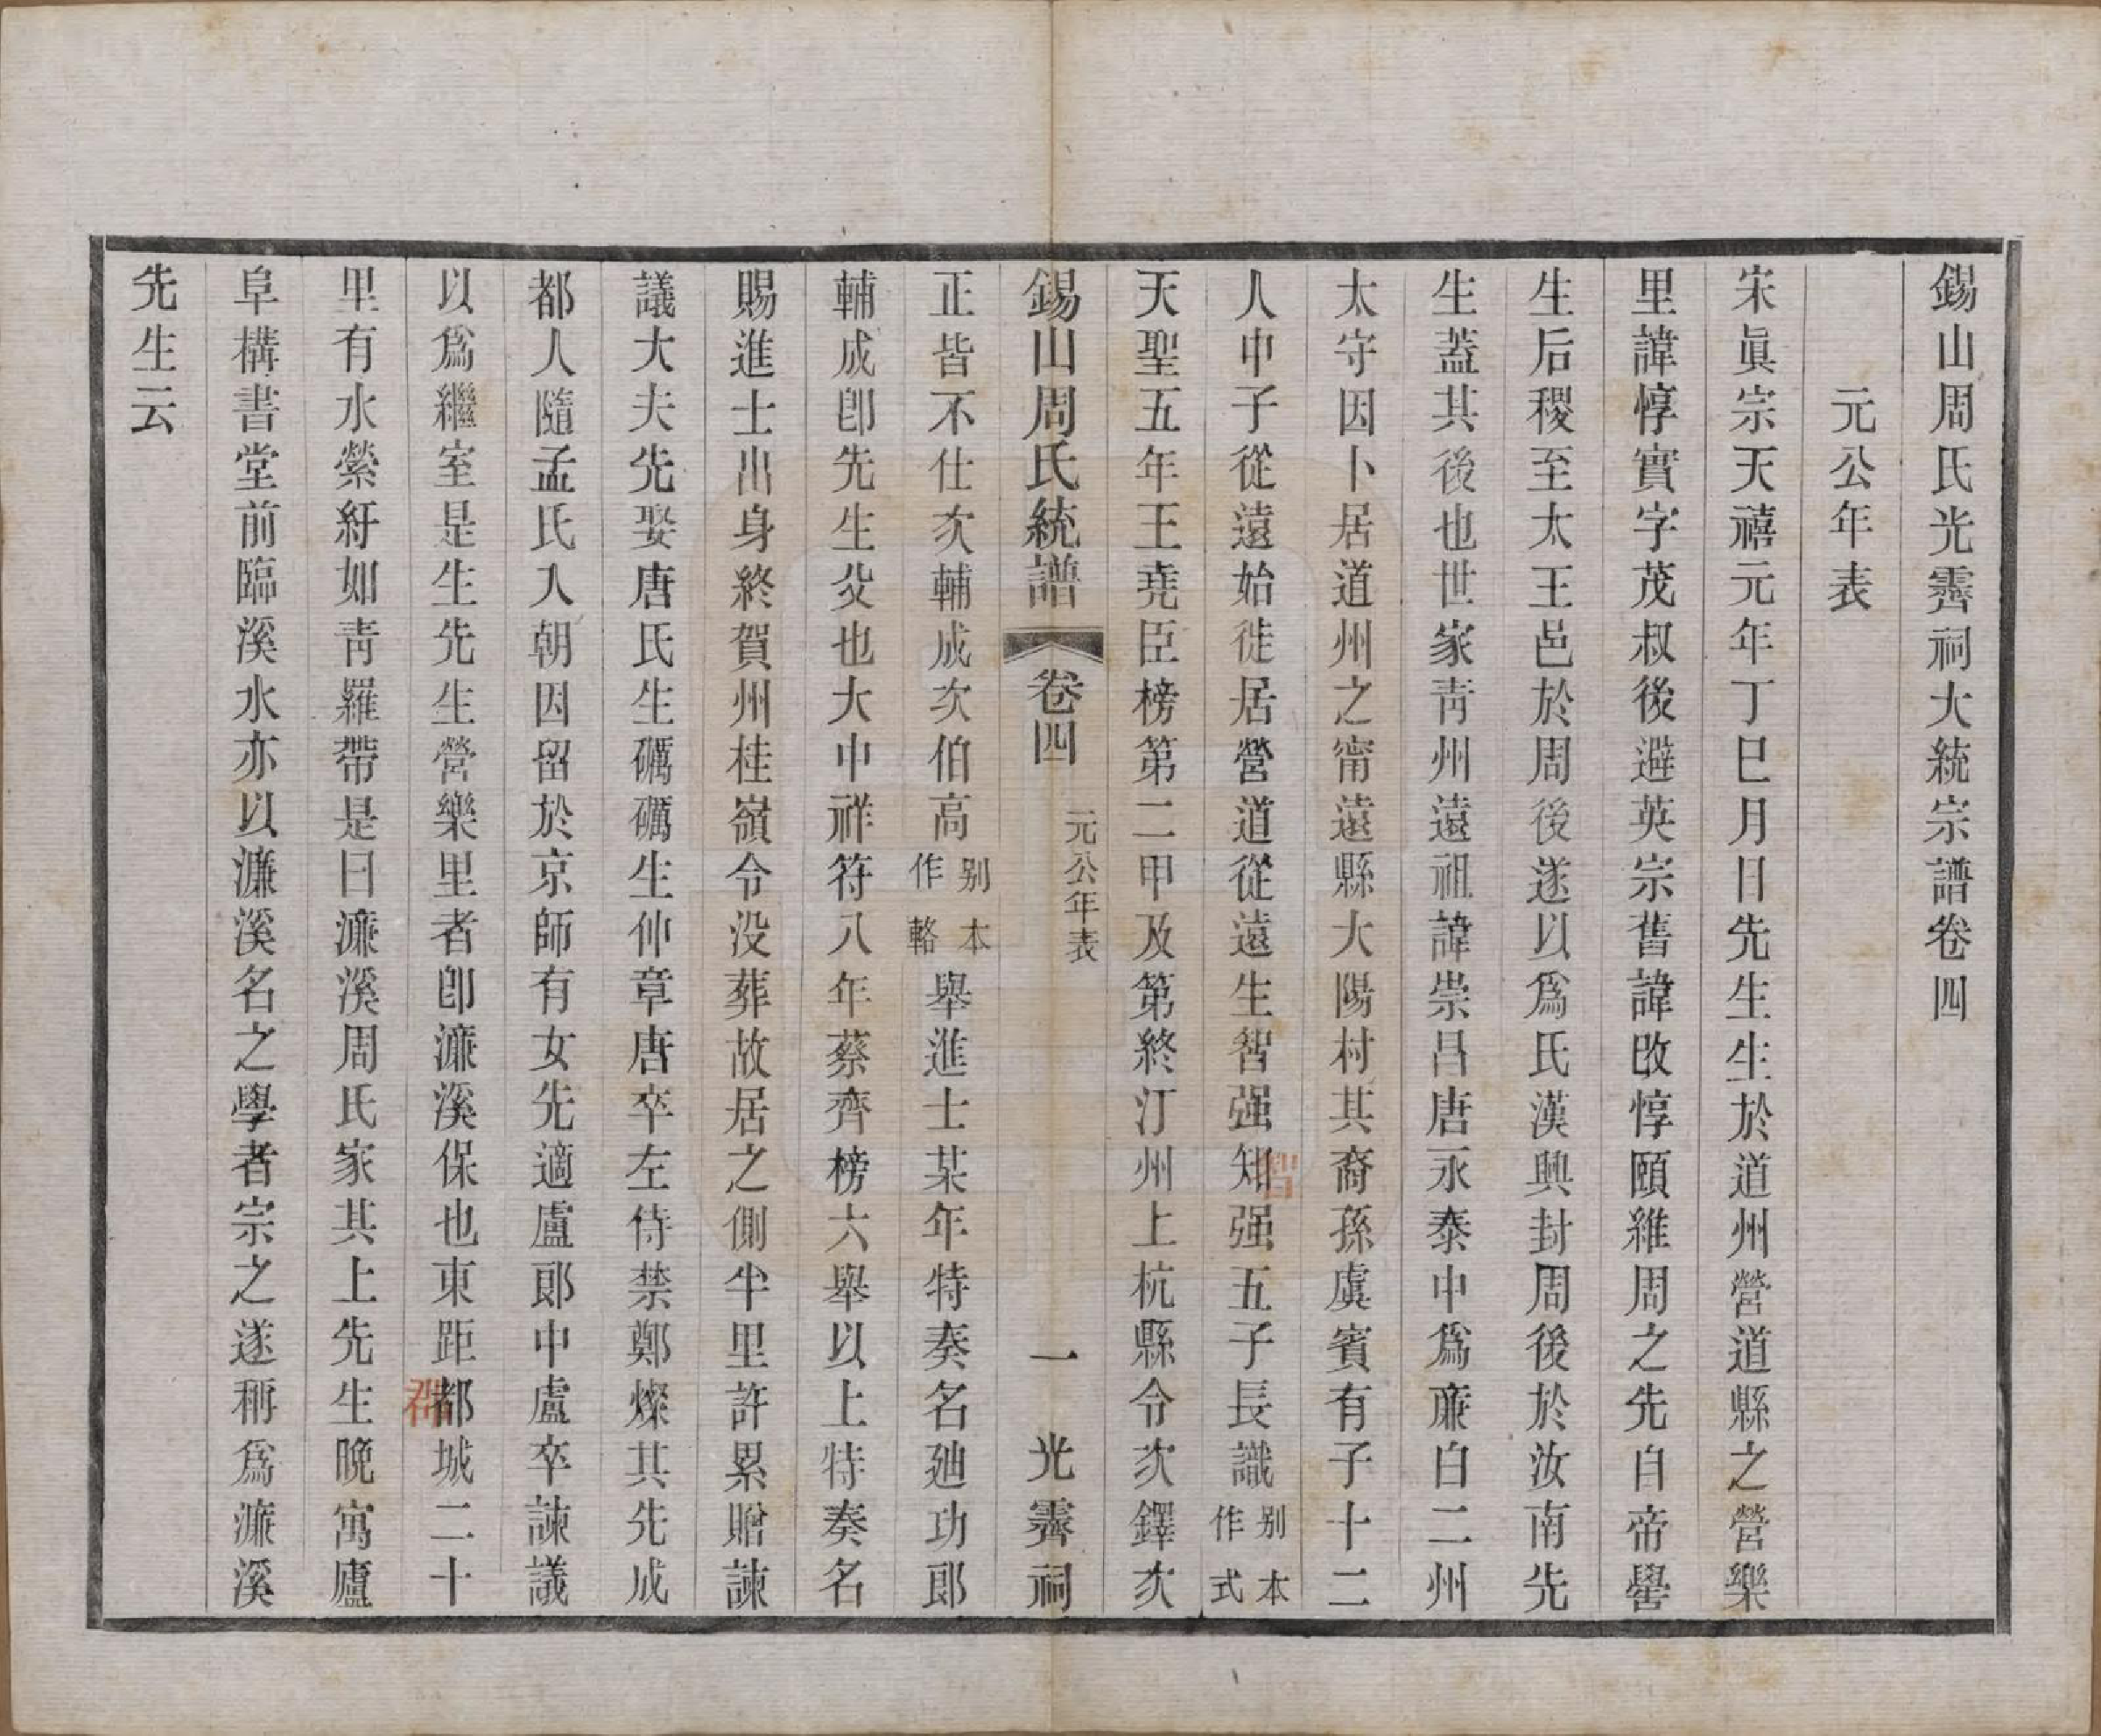 錫山周氏光霽祠大統宗譜卷四
元公年表
宋眞宗天禧元年丁巳月日先生生於道州營道縣之營樂
里諱惇實字茂叔後避英宗舊諱改惇頤維周之先自帝嚳
生后稷至太王邑於周後遂以爲氏漢興封周後於汝南先
生蓋其後也世家靑州遠祖諱崇昌唐永泰中爲廉白二州
太守因卜居道州之甯遠縣大陽村其裔孫虞賓有子十二
人中子從遠始徙居營道從遠生智强知强五子長識别本作式
智
天聖五年王堯臣榜第二甲及第終汀州上杭縣令次鐸次
錫山周氏統譜 卷四 元公年表 一 光霽祠
正皆不仕次輔成次伯高别本作輅舉進士某年特奏名廸功郎
輔成卽先生父也大中祥符八年蔡齊榜六舉以上特奏名
賜進士出身終賀州桂嶺令没葬故居之側半里許累贈諫
議大夫先娶唐氏生礪礪生仲章唐卒左侍禁鄭燦其先成
都人隨孟氏入朝因留於京師有女先適盧郎中盧卒諫議
以爲繼室是生先生營樂里者卽濂溪保也東距都城二十
里有水縈紆如靑羅帶是曰濂溪周氏家其上先生晚寓廬
阜構書堂前臨溪水亦以濂溪名之學者宗之遂稱爲濂溪
先生云